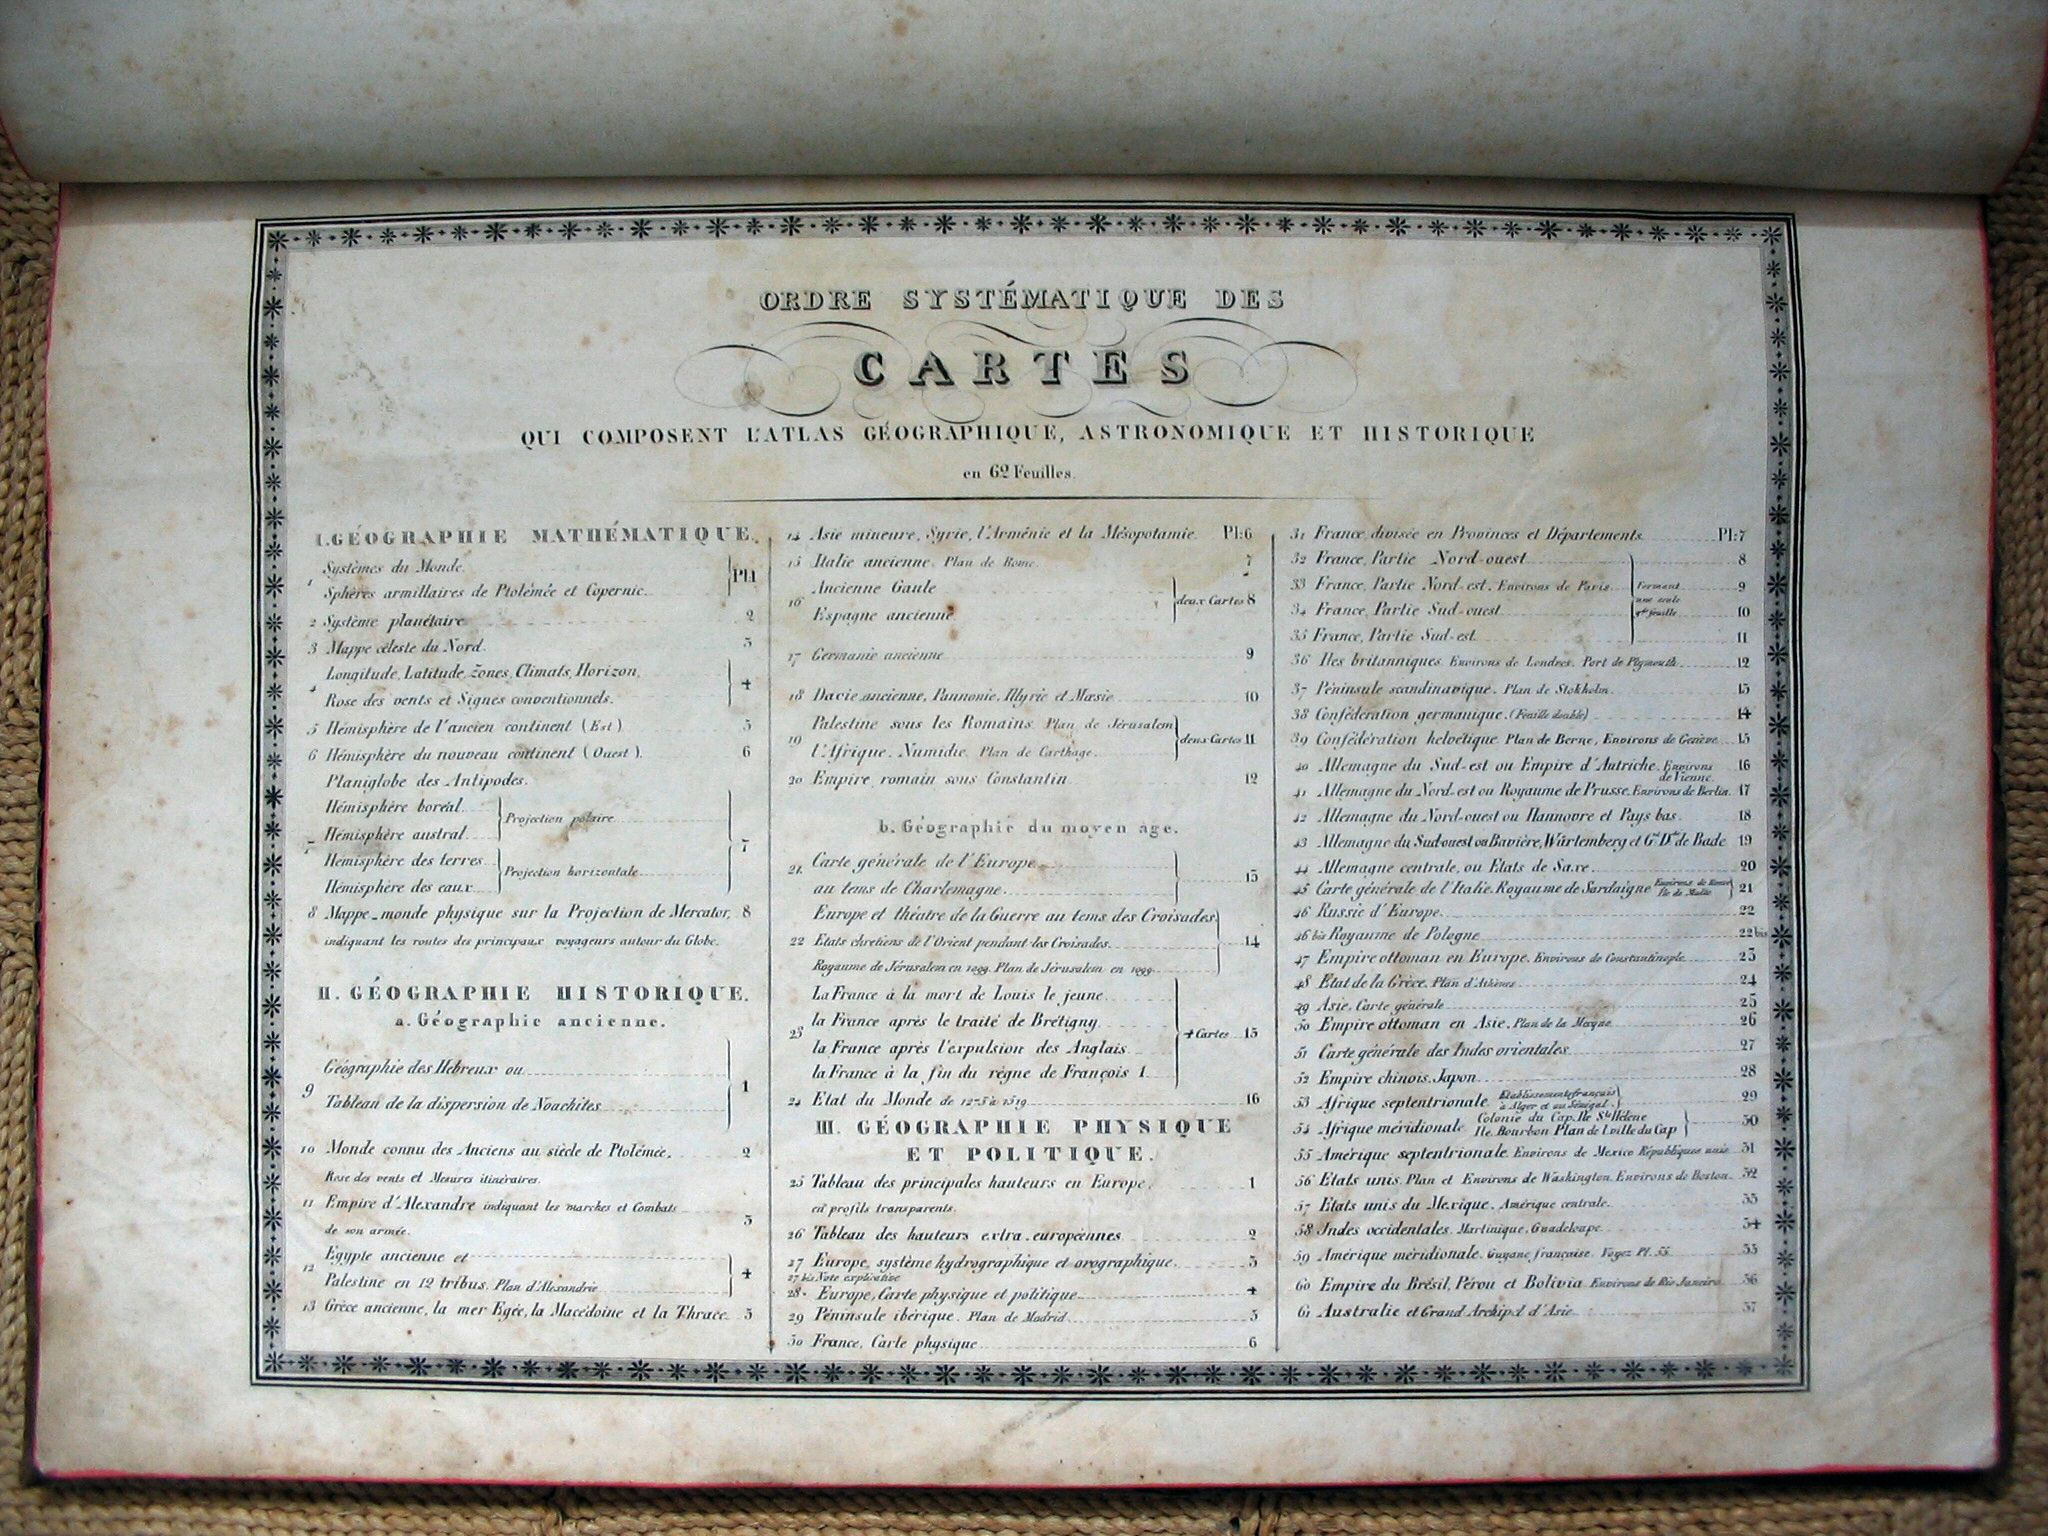 ORDRE SYSTÉMATIQUE DES
CARTES
QUI COMPOSENT L'ATLAS GÉOGRAPHIQUE, ASTRONOMIQUE ET HISTORIQUE
en 62 Feuilles.
I. GÉOGRAPHIE MATHÉMATIQUE.
1 Systèmes du Monde. Pl:1
Sphères armillaires de Ptolémée et Copernic.
2 Système planétaire 2
3 Mappe céleste du Nord. 3
4 Longitude, Latitude, Zones, Climats, Horizon, 4
Rose des vents et Signes conventionnels.
5 Hémisphère de l'ancien continent (Est) 5
6 Hémisphère du nouveau continent (Ouest). 6
Planiglobe des Antipodes.
7 Hémisphère boréal. Projection polaire 7
Hémisphère austral.
Hémisphère des terres Projection horizontale
Hémisphère des eaux
8 Mappe-monde physique sur la Projection de Mercator, 8
indiquant les routes des principaux voyageurs autour du Globe.
II. GÉOGRAPHIE HISTORIQUE.
a. Géographie ancienne.
9 Géographie des Hébreux ou 1
Tableau de la dispersion de Noachites
10 Monde connu des Anciens au siècle de Ptolémée. 2
Rose des vents et Mesures itinéraires.
11 Empire d'Alexandre indiquant les marches et Combats 3
de son armée.
12 Egypte ancienne et 4
Palestine en 12 tribus. Plan d'Alexandrie
13 Grèce ancienne, la mer Egée, la Macédoine et la Thrace 5
14 Asie mineure, Syrie, l'Arménie et la Mésopotamie Pl:6
15 Italie ancienne. Plan de Rome. 7
16 Ancienne Gaule deux Cartes 8
Espagne ancienne
17 Germanie ancienne 9
18 Dacie ancienne, Pannonie, Illyrie et Mœsie 10
19 Palestine sous les Romains. Plan de Jérusalem deux Cartes 11
l'Afrique. Numidie. Plan de Carthage.
20 Empire romain sous Constantin 12
b. Géographie du moyen age.
21 Carte générale de l'Europe 13
au tems de Charlemagne
22 Europe et théatre de la Guerre au tems des Croisades 14
Etats chretiens de l'Orient pendant les Croisades.
Royaume de Jérusalem en 1099. Plan de Jérusalem en 1099
23 La France à la mort de Louis le jeune 4 Cartes 15
la France après le traité de Brétigny
la France après l'expulsion des Anglais
la France à la fin du règne de François I
24 Etat du Monde de 1275 à 1519 16
III. GÉOGRAPHIE PHYSIQUE
ET POLITIQUE.
25 Tableau des principales hauteurs en Europe. 1
en profils transparents.
26 Tableau des hauteurs extra-européennes 2
27 Europe, système hydrographique et orographique. 3
27 bis Note explicative
28 Europe, Carte physique et politique 4
29 Péninsule ibérique. Plan de Madrid 5
30 France, Carte physique 6
31 France divisée en Provinces et Départements Pl:7
32 France, Partie Nord-ouest 8
33 France, Partie Nord-est. Environs de Paris 9
34 France, Partie Sud-ouest 10
35 France, Partie Sud-est 11
Formant une seule gde feuille
36 Iles britanniques. Environs de Londres. Port de Plymouth 12
37 Péninsule scandinavique. Plan de Stokholm. 13
38 Confédération germanique. (Feuille double) 14
39 Confédération helvétique. Plan de Berne, Environs de Genève 15
40 Allemagne du Sud-est ou Empire d'Autriche. Environs de Vienne. 16
41 Allemagne du Nord-est ou Royaume de Prusse. Environs de Berlin. 17
42 Allemagne du Nord-ouest ou Hannovre et Pays bas. 18
43 Allemagne du Sud-ouest ou Bavière, Würtemberg et Gd Dé de Bade 19
44 Allemagne centrale, ou Etats de Saxe. 20
45 Carte générale de l'Italie. Royaume de Sardaigne Environs de Rome Ile de Malte 21
46 Russie d'Europe. 22
46 bis Royaume de Pologne 22 bis
47 Empire ottoman en Europe. Environs de Constantinople 23
48 Etat de la Grèce. Plan d'Athènes 24
49 Asie. Carte générale 25
50 Empire ottoman en Asie. Plan de la Mecque 26
51 Carte générale des Indes orientales 27
52 Empire chinois. Japon 28
53 Afrique septentrionale. Etablissements français à Alger et au Sénégal. 29
54 Afrique méridionale Colonie du Cap. Ile Ste Hélène 30
Ile. Bourbon Plan de l. ville du Cap
55 Amérique septentrionale. Environs de Mexico Républiques unis 31
56 Etats unis. Plan et Environs de Washington. Environs de Boston 32
57 Etats unis du Mexique. Amérique centrale. 33
58 Indes occidentales. Martinique. Guadeloupe 34
59 Amérique méridionale. Guyane française. Voyez Pl. 33 35
60 Empire du Brésil, Pérou et Bolivia Environs de Rio Janeiro 36
61 Australie et Grand Archipel d'Asie 37